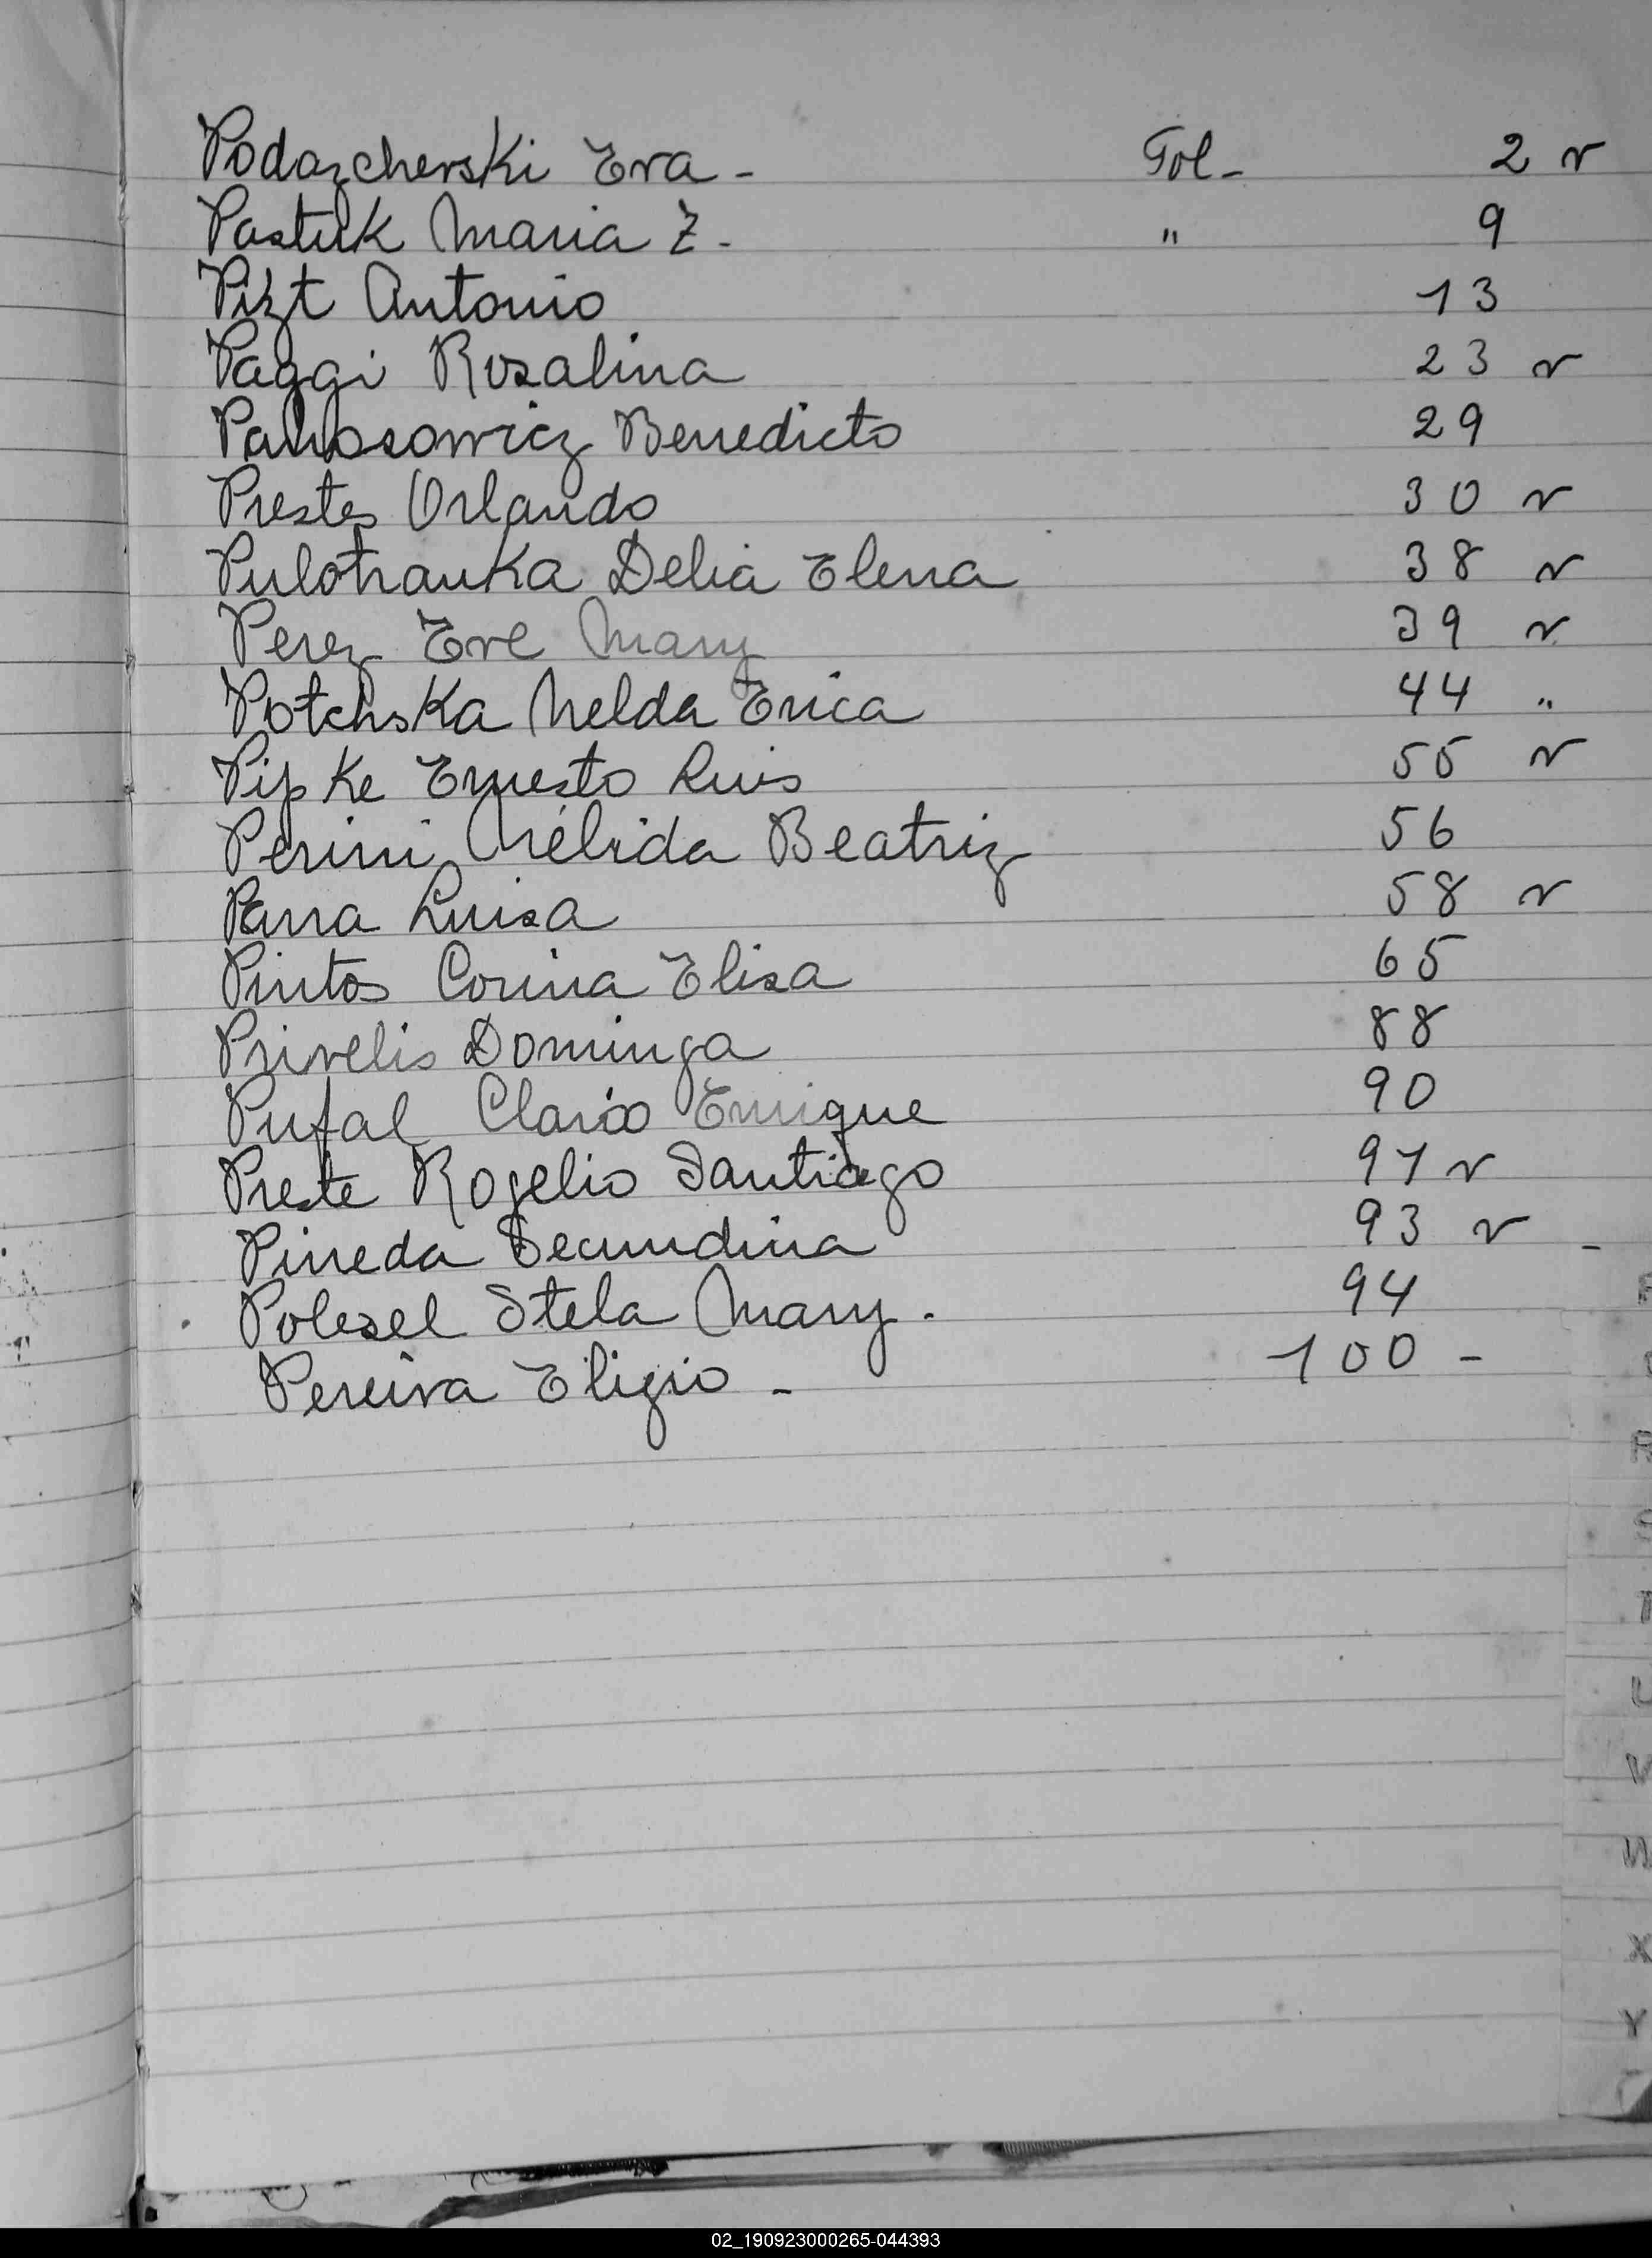 Podozcherski Eva - Fol - 2 v
Pastuk Maria Z. " 9
Pizt Antonio 13
Paggi Rosalina 23 v
Benedicto 29
Prestes Orlando 30 v
Pulotrauka Delia Elena 38 v
Perez Eve Mary 39 v
Potchska Nelda Erica 44 "
Pipke Ernesto Luis 55 v
Perini Nélida Beatriz 56
Parra Luisa 58 v
Pintos Corina Elisa 65
Privelis Dominga 88
Pufal Enrique 90
Preste Rogelio Santiago 91 v
Pineda Secundina 93 v -
Polesel Stela Mary. 94
Pereira Eligio - 100 -
R
S
T
U
V
W
X
Y
02_190923000265-044393